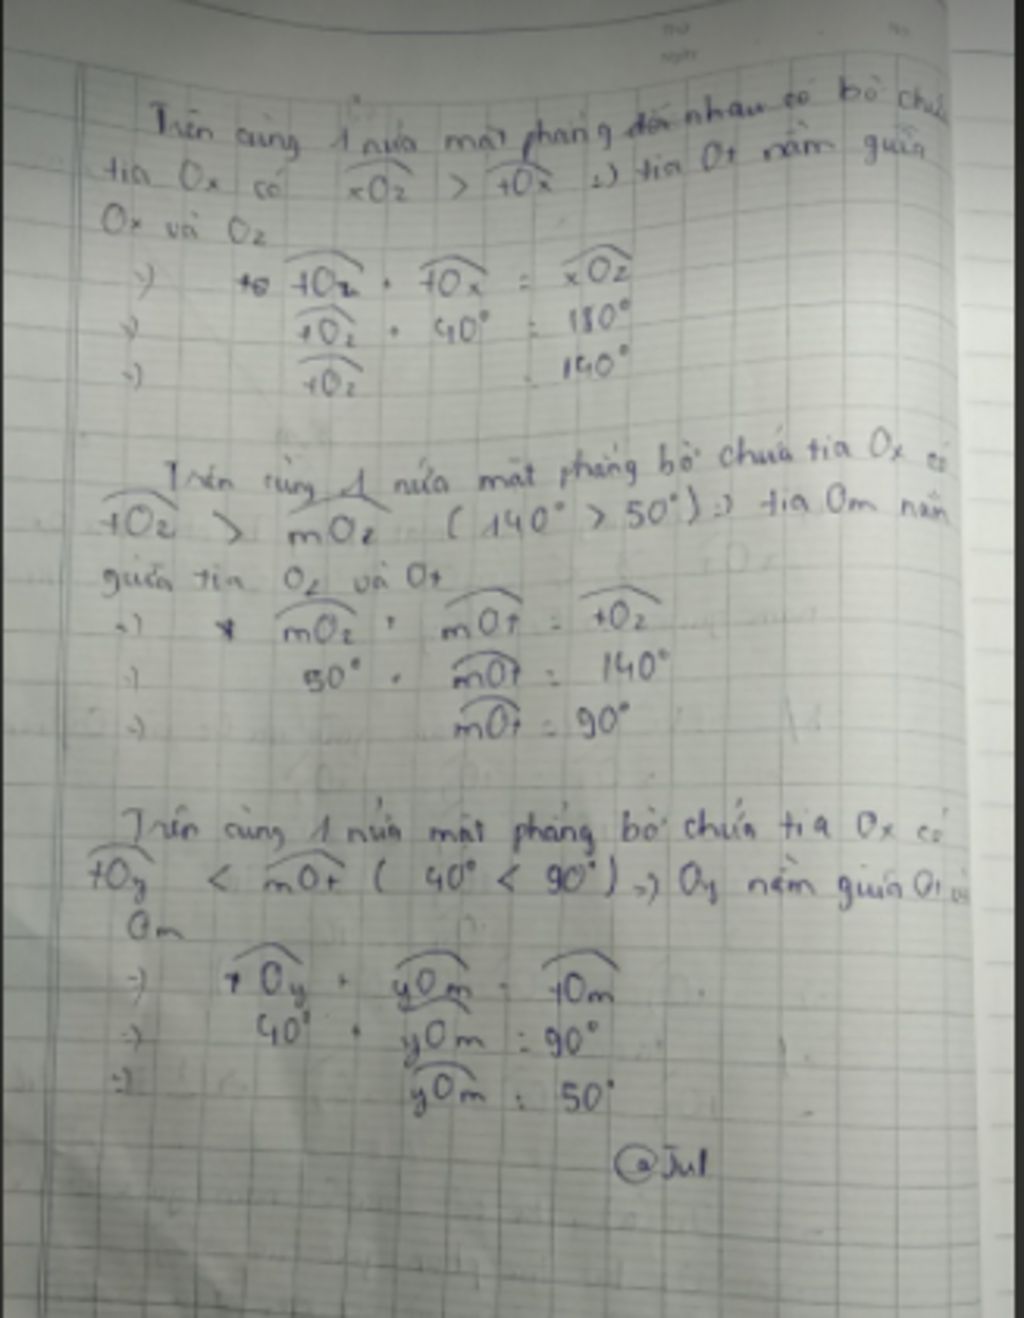 Trên cùng 1 nửa mặt phẳng đối nhau có bờ chứa
tia Ox có xOz > tOx => tia Ot nằm giữa
Ox và Oz
=> tOz + tOx = xOz
=> tOz + 40° = 180°
=> tOz = 140°
Trên cùng 1 nửa mặt phẳng bờ chứa tia Ox có
tOz > mOz (140° > 50°) => tia Om nằm
giữa tia Oz và Ot
=> mOz + mOt = tOz
=> 50° + mOt = 140°
=> mOt = 90°
Trên cùng 1 nửa mặt phẳng bờ chứa tia Ox có
tOy < mOt (40° < 90°) => Oy nằm giữa Ot và
Om
=> tOy + yOm = tOm
=> 40° + yOm = 90°
=> yOm = 50°
@Jul